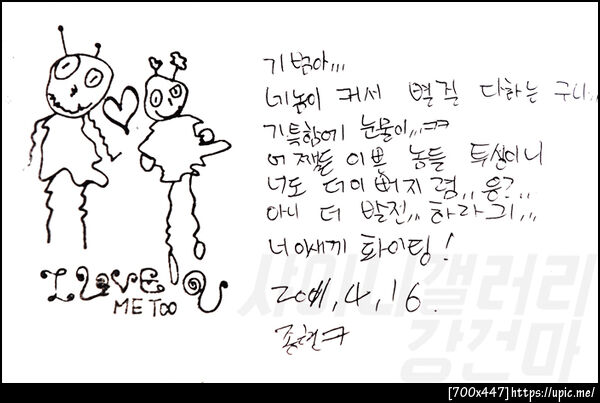 기범아...
네놈이 커서 별걸 다하는 구나..
기특함에 눈물이...ㅋㅋ
어쨌든 이쁜 놈들 투성이니
너도 더 이뻐지렴.. 응?..
아니 더 발전.. 하라긔...
너 이새끼 화이팅!
4, 16.
종현ㅋ
I LOVE U
ME TOO
샤이니갤러리
강건마
[700x447]https://upic.me/